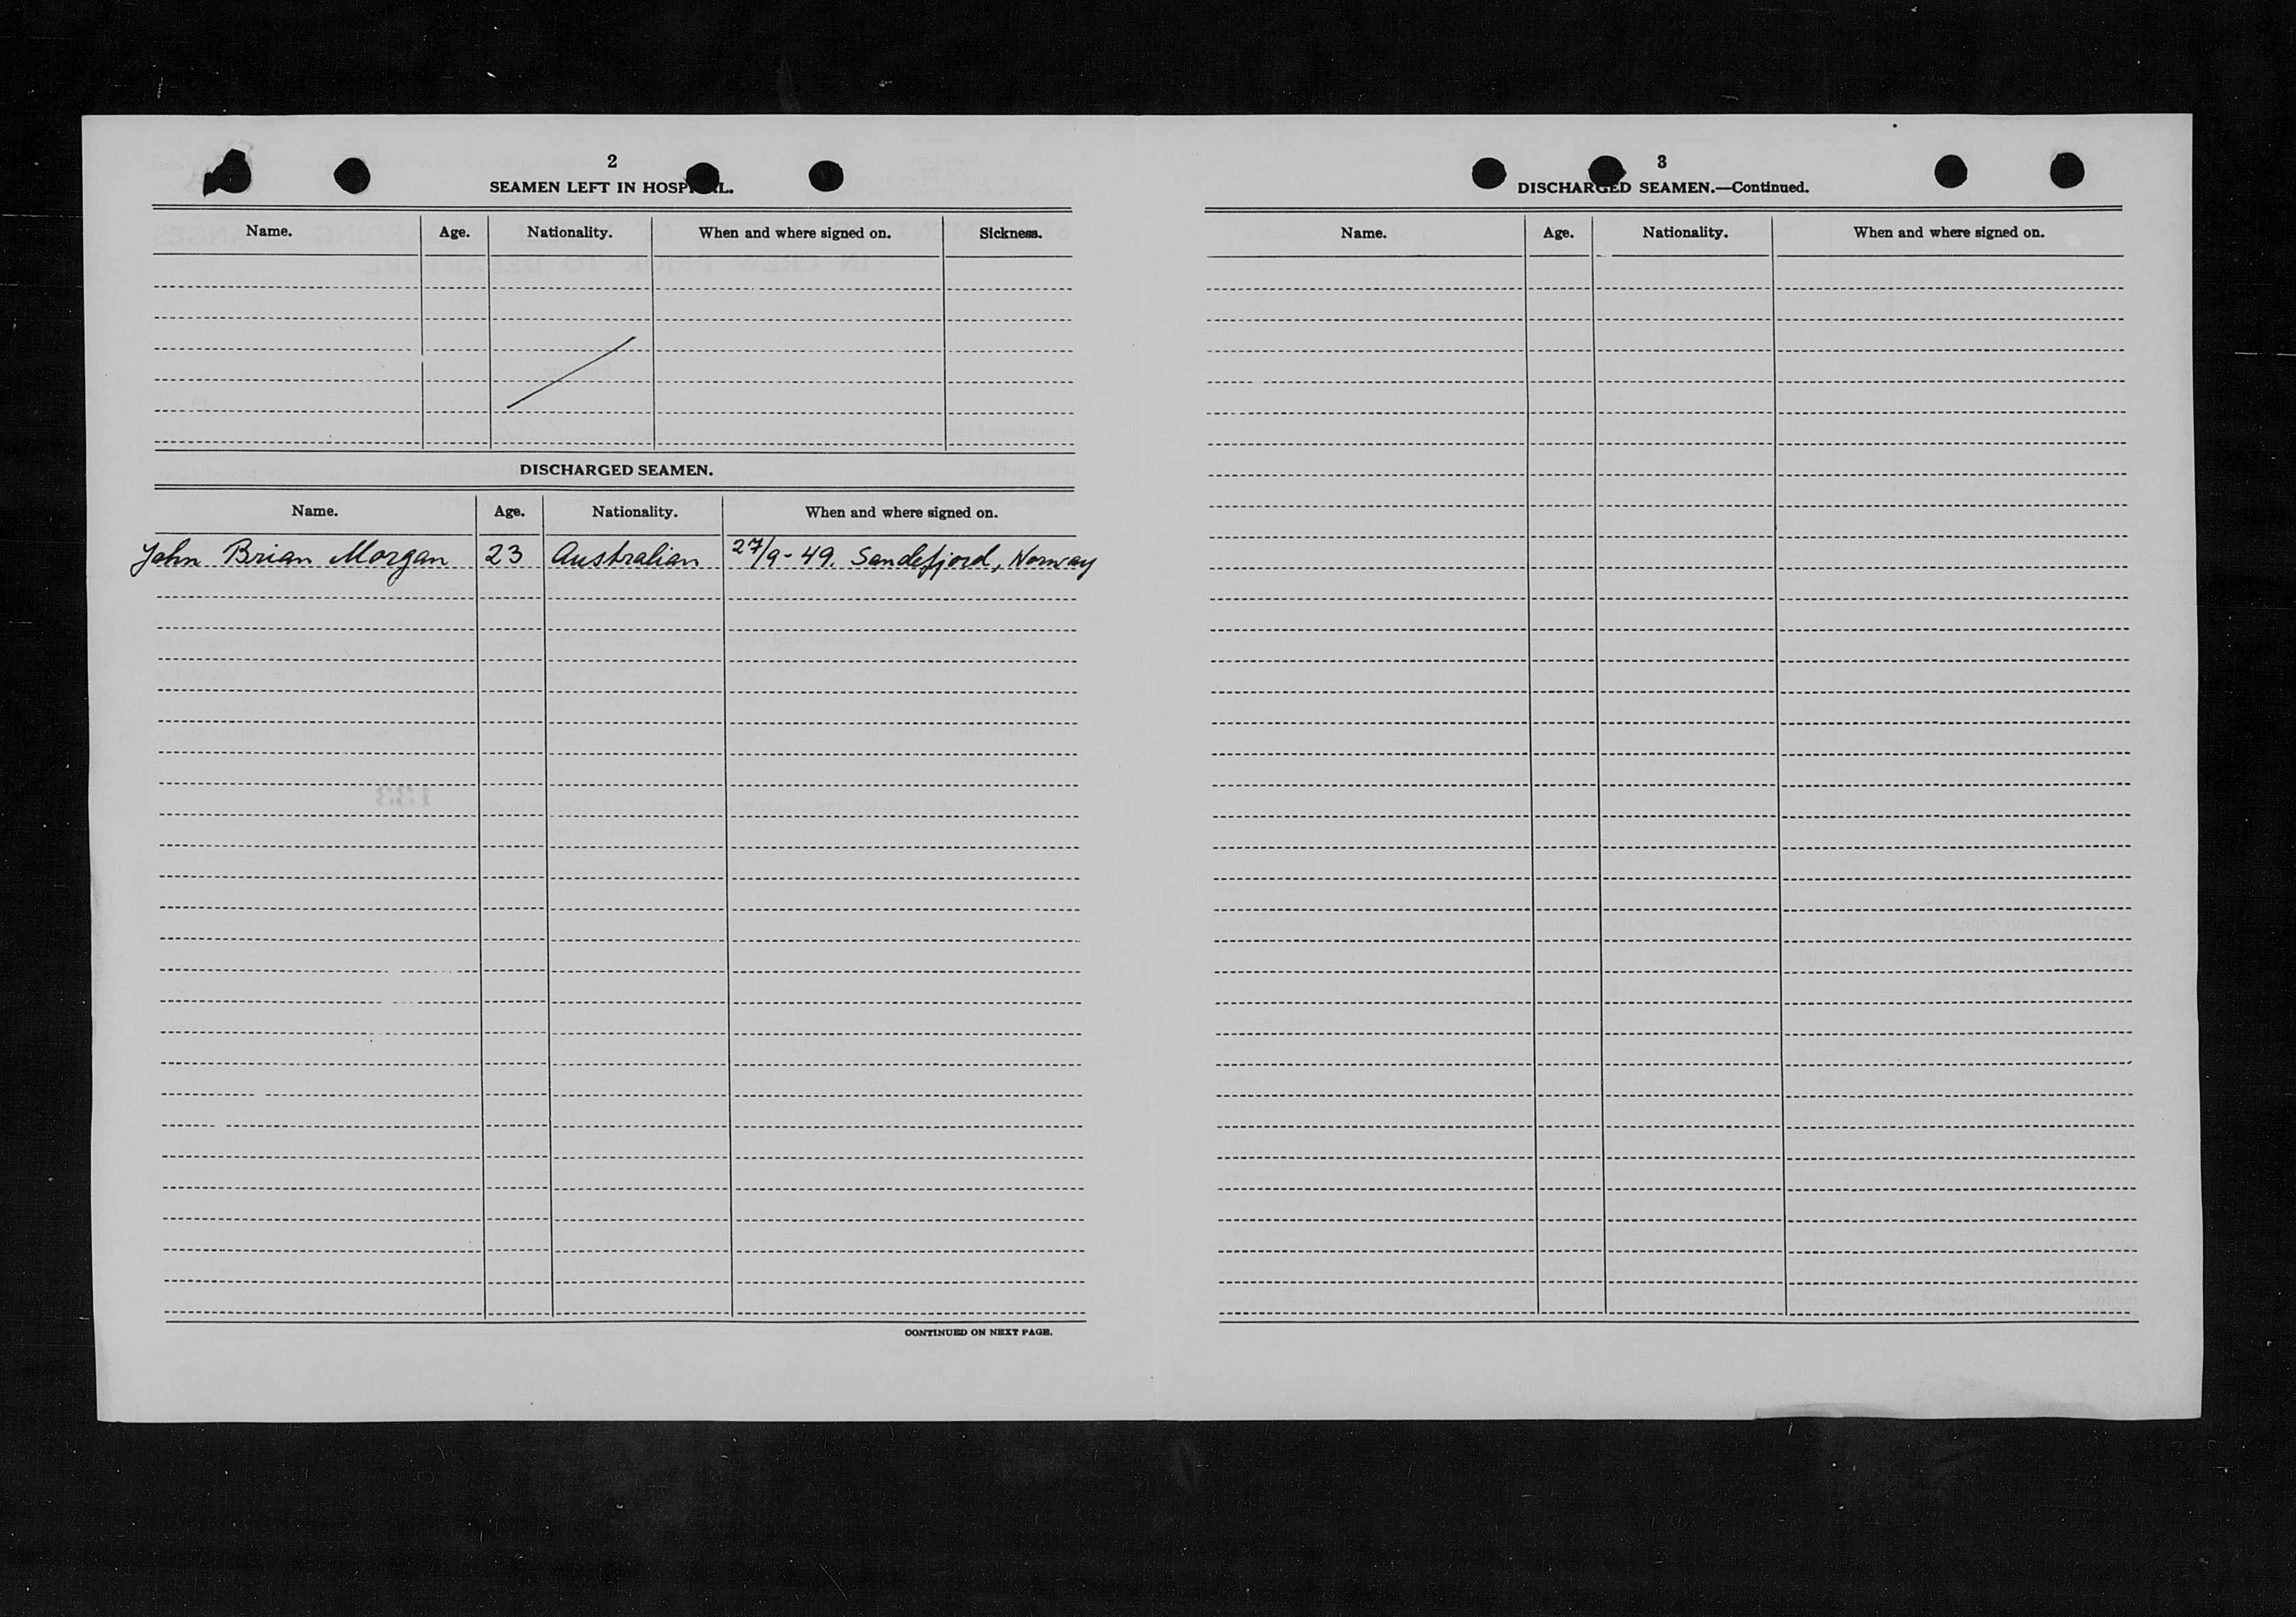 2
SEAMEN LEFT IN HOSPITAL.
Name. Age. Nationality. When and where signed on. Sickness.
DISCHARGED SEAMEN.
Name. Age. Nationality. When and where signed on.
John Brian Morgan 23 Australian 27/9-49. Sandefjord, Norway
CONTINUED ON NEXT PAGE.
3
DISCHARGED SEAMEN.—Continued.
Name. Age. Nationality. When and where signed on.